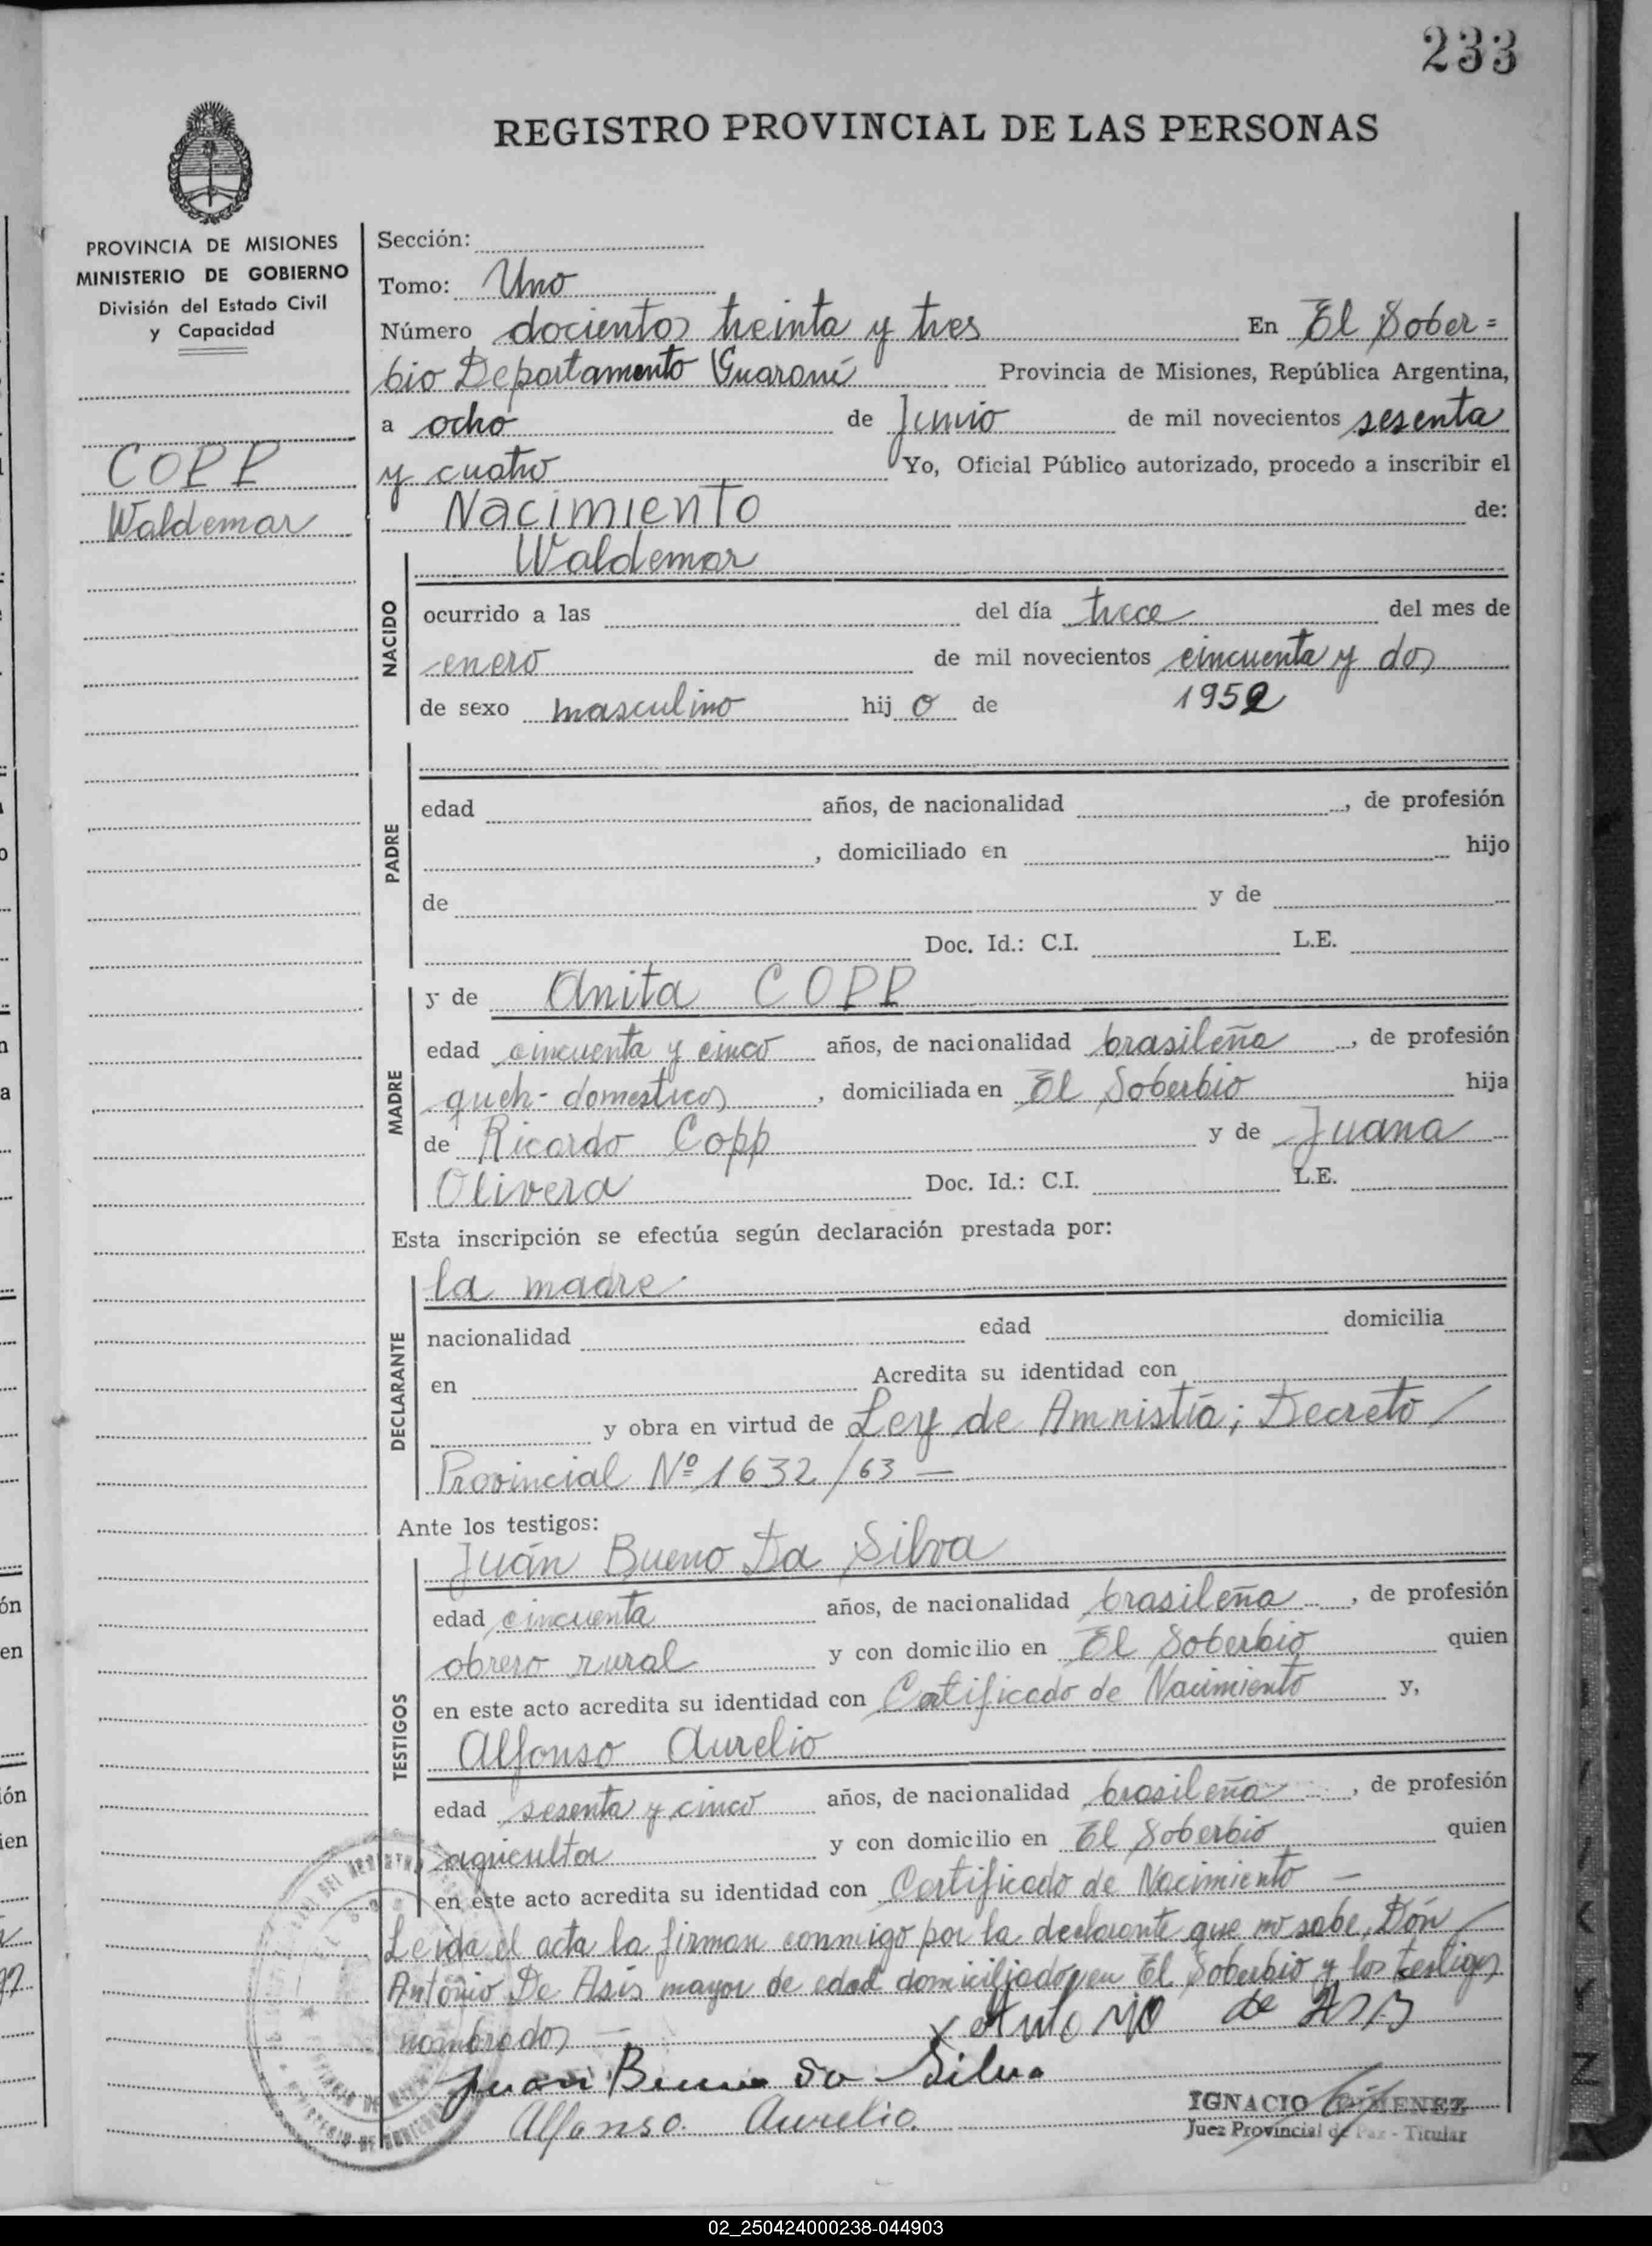 233
REGISTRO PROVINCIAL DE LAS PERSONAS
PROVINCIA DE MISIONES
MINISTERIO DE GOBIERNO
División del Estado Civil
y Capacidad
COPP
Waldemar
Sección:
Tomo: Uno
Número docientos treinta y tres En El Sober=
bio Departamento Guaraní Provincia de Misiones, República Argentina,
a ocho de Junio de mil novecientos sesenta
y cuatro Yo, Oficial Público autorizado, procedo a inscribir el
Nacimiento de:
Waldemar
NACIDO
ocurrido a las del día trece del mes de
enero de mil novecientos cincuenta y dos
de sexo masculino hijo de 1952
PADRE
edad años, de nacionalidad , de profesión
, domiciliado en hijo
de y de
Doc. Id.: C.I. L.E.
MADRE
y de Anita COPP
edad cincuenta y cinco años, de nacionalidad brasileña , de profesión
queh- domesticos , domiciliada en El Soberbio hija
de Ricardo Copp y de Juana
Olivera Doc. Id.: C.I. L.E.
Esta inscripción se efectúa según declaración prestada por:
DECLARANTE
la madre
nacionalidad edad domicilia
en Acredita su identidad con
y obra en virtud de Ley de Amnistía; Decreto /
Provincial Nº 1632/63 —
Ante los testigos:
TESTIGOS
Juán Bueno Da Silva
edad cincuenta años, de nacionalidad brasileña , de profesión
obrero rural y con domicilio en El Soberbio quien
en este acto acredita su identidad con Certificado de Nacimiento y,
Alfonso Aurelio
edad sesenta y cinco años, de nacionalidad brasileña , de profesión
agricultor y con domicilio en El Soberbio quien
en este acto acredita su identidad con Certificado de Nacimiento —
Leida el acta la firman conmigo por la declarante que no sabe, Dón /
António De Asis mayor de edad domiciliado en El Soberbio y los testigos
nombrados —
x Antonio de Asis
Juan Bueno da Silva
Alfonso Aurelio.
IGNACIO GIMENEZ
Juez Provincial de Paz - Titular
02_250424000238-044903